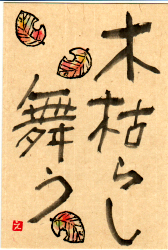 木枯らし
舞う
え